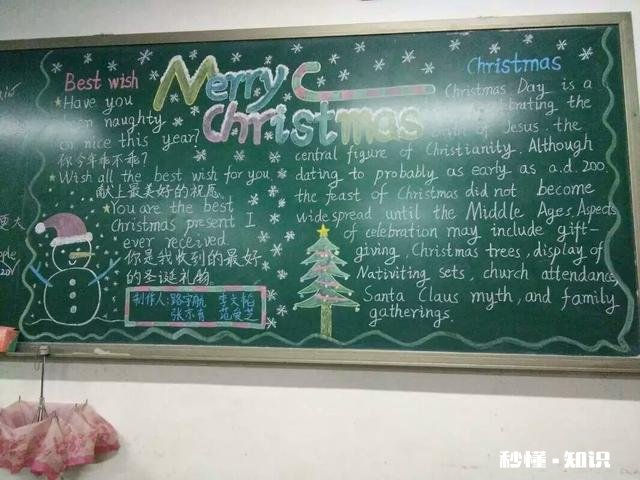 Merry
Christmas
Best wish
Have you
naughty
or nice this year?
你今年乖不乖?
Wish all the best wish for you
献上最美好的祝愿
You are the best
Christmas present I
ever received.
你是我收到的最好
的圣诞礼物
制作人:
Christmas
Christmas Day is a
the
of Jesus. the
central figure of Christianity. Although
dating to probably as early as a.d. 200.
the feast of Christmas did not become
widespread until the Middle Ages. Aspects
of celebration may include gift-
giving, Christmas trees, display of
Nativiting sets, church attendance,
Santa Claus myth, and family
gatherings.
秒懂·知识